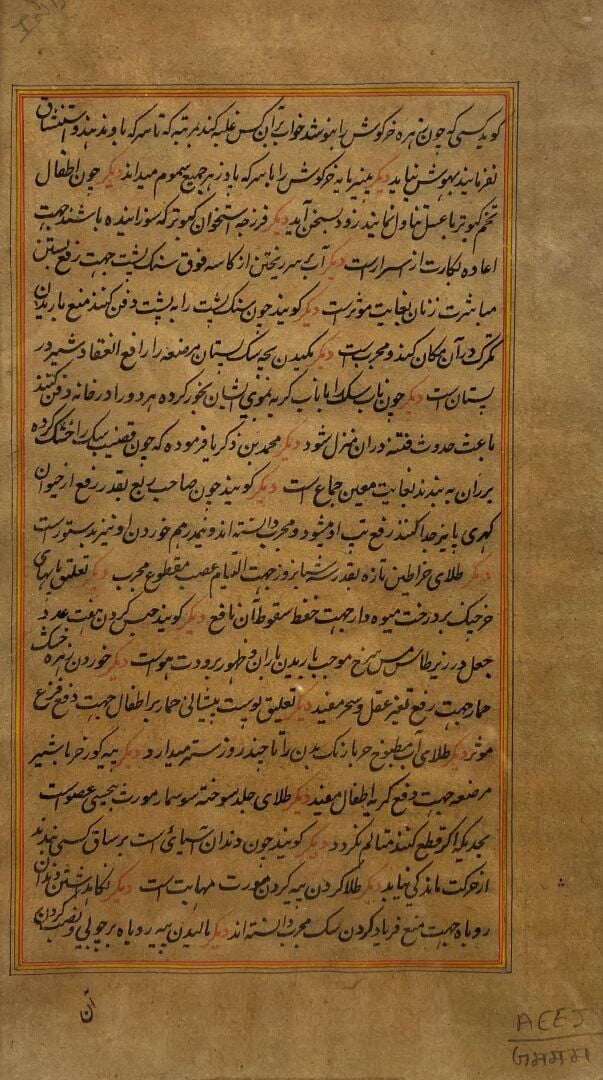 کویند کسی که چون زهره خرکوش را بنوشد خواب بر آن کس غلبه کند بمرتبه که تا سرکه باو ندهند و استنشاق
نفرمایند بهوش نیاید دیکر پنیر مایه خرکوش را با سرکه پادزهر جمیع سموم میداند دیکر چون اطفال
تخم کبوتر با عسل تناول نمایند زود بسخن آید دیکر فرزجه استخوان کبوتر که سوزانیده باشند جهت
اعاده بکارت از اسرار است دیکر آب بر سر ریختن از کاسه فوق سنک پشت جهت رفع بستن
مباشرت زنان بغایت موثر است دیکر کویند چون سنک پشت را به پشت دفن کنند منع باریدن
تکرک در آن مکان کند و مجرب است دیکر مکیدن بچه سک پستان مرضعه را رافع انعقاد شیر در
پستان است دیکر چون ناب سک را با ناب کربه بموی ایشان بخور کرده هر دو را در خانه دفن کنند
باعث حدوث فتنه در ان منزل شود دیکر محمد بن ذکریا فرموده که چون قضیب سک را خشک کرده
بر ران به بندند بغایت معین جماع است دیکر کویند چون صاحب ربع بقدر ربع از حیوان
کهری پا نیز جدا کنند رفع تب او میشود و مجرب دانسته اند و نیمدرهم خوردن او نیز بدستور است
دیکر طلای خراطین تازه بقدر سه شبانروز جهت التیام عصب مقطوع مجرب دیکر تعلیق پایهای
خرچنک بر درخت میوه دار جهت حفظ سقوط آن نافع دیکر کویند حبس کردن هفت عدد
جعل در زیر طاس مس سرخ موجب باریدن باران و ظهور برودت هواست دیکر خوردن زهره خشک
حمار جهت رفع تغیر عقل و سحر مفید دیکر تعلیق پوست پیشانی حمار بر اطفال جهت دفع فزع
موثر دیکر طلای آب مطبوخ حربا رنک بدن را تا چند روز سبز میدارد دیکر پیه کورخر با شیر
مرضعه جهت دفع کریه اطفال مفید دیکر طلای جلد سوخته سوسمار مورث بیحسی عضو است
بحدیکه اکر قطع کنند متالم نکردد دیکر کویند چون دندان آسیائی است بر ساق کسی بندند
از حرکت ماندکی نیابد دیکر طلا کردن پیه کردن مورث مهابت است دیکر نکاهداشتن دندان
روباه جهت منع فریاد کردن سک مجرب دانسته اند دیکر مالیدن پیه روباه بر چوبی و نصب کردن
آن
AEEJ